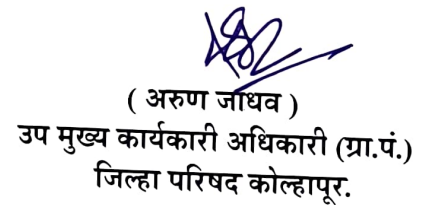 ( अरुण जाधव )
उप मुख्य कार्यकारी अधिकारी (ग्रा.पं.)
जिल्हा परिषद कोल्हापूर.